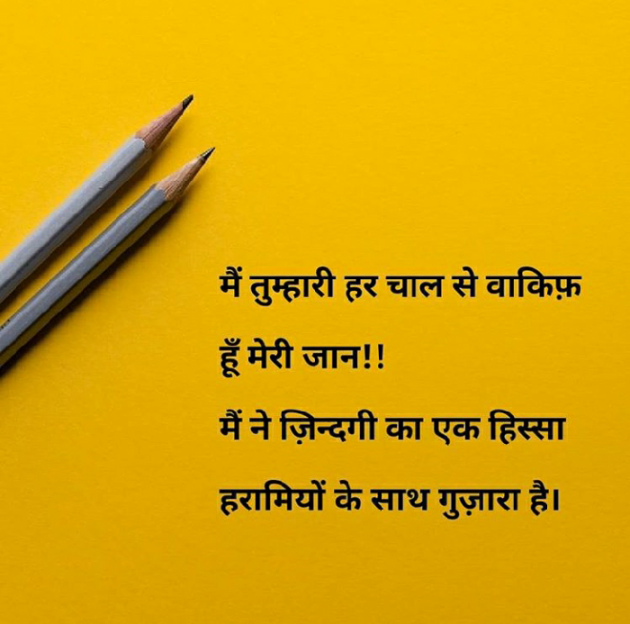 मैं तुम्हारी हर चाल से वाकिफ़
हूँ मेरी जान!!
मैं ने ज़िन्दगी का एक हिस्सा
हरामियों के साथ गुज़ारा है।